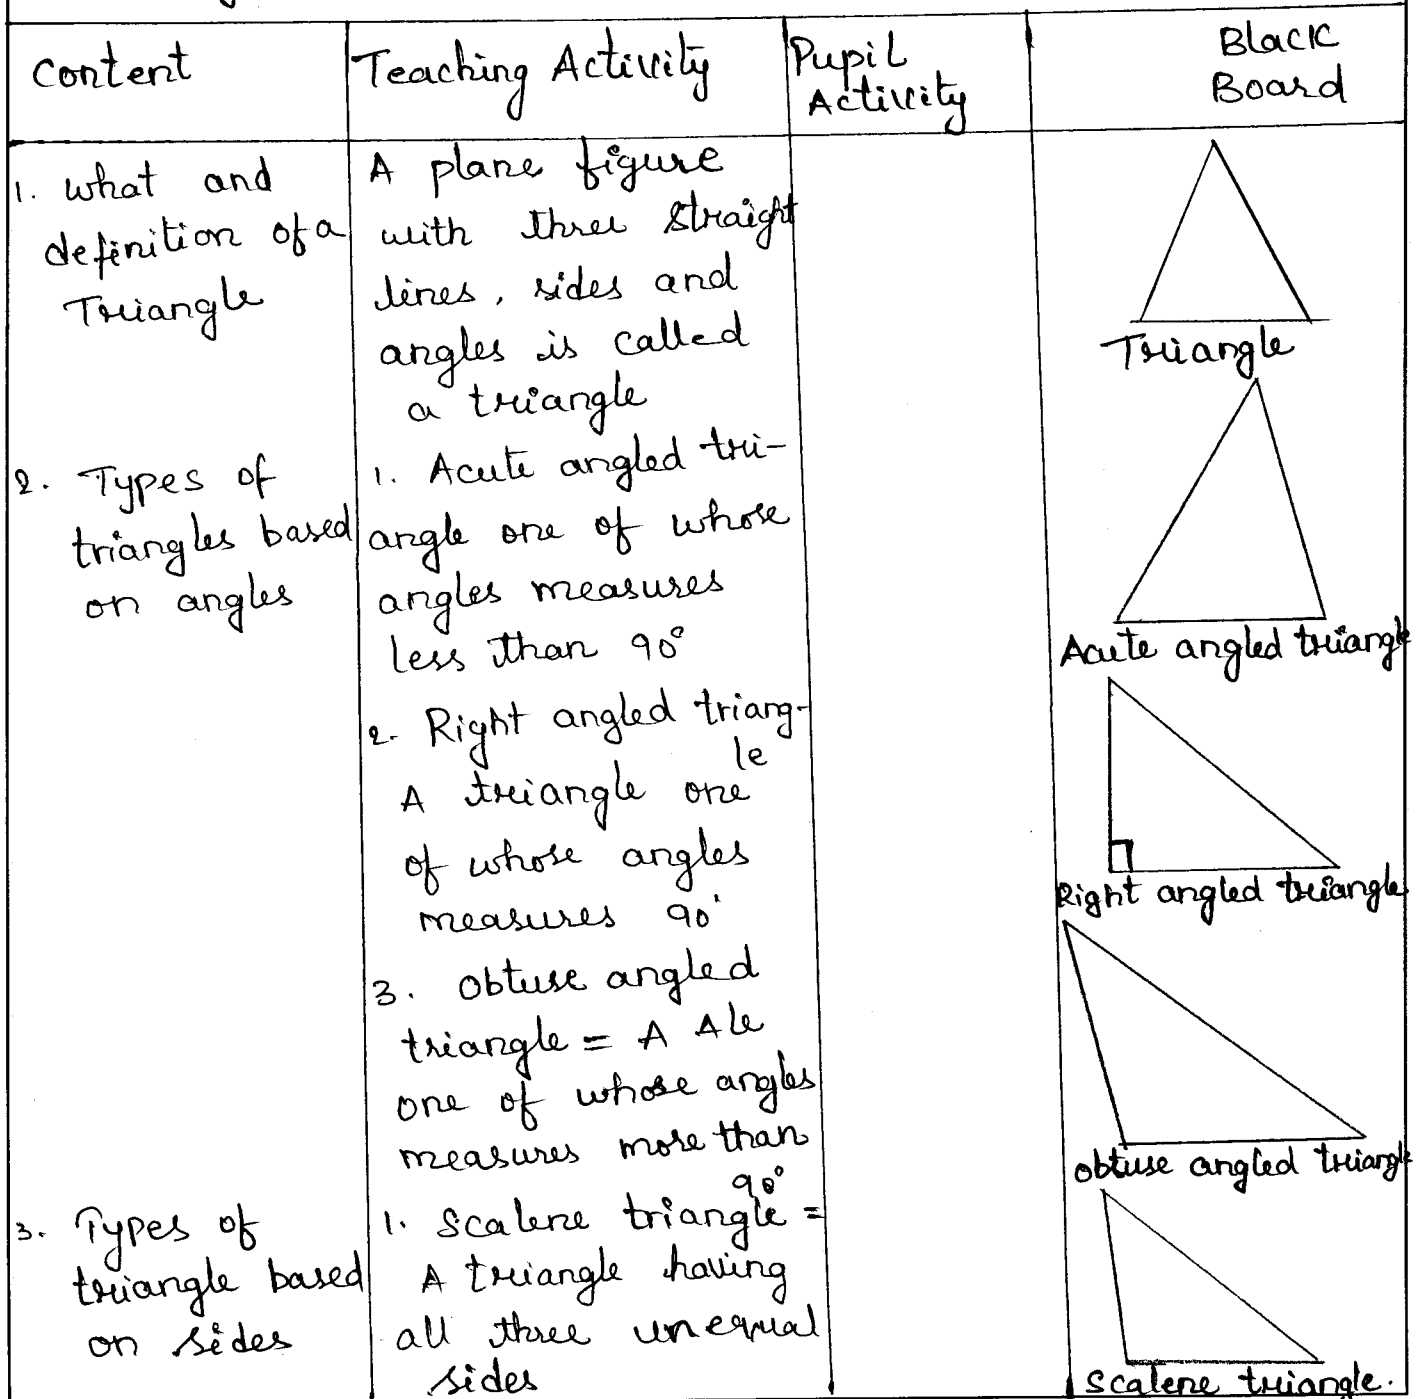 Content
Teaching Activity
Pupil
Activity
Black
Board
1. What and
definition of a
Triangle
A plane figure
with three straight
lines, sides and
angles is called
a triangle
Triangle
2. Types of
triangles based
on angles
1. Acute angled tri-
angle one of whose
angles measures
less than 90°
Acute angled triangle
2. Right angled triang-
le
A triangle one
of whose angles
measures 90'
Right angled triangle
3. Obtuse angled
triangle = A Δle
one of whose angles
measures more than
90°
obtuse angled triangle
3. Types of
triangle based
on sides
1. Scalene triangle =
A triangle having
all three unequal
sides
Scalene triangle.